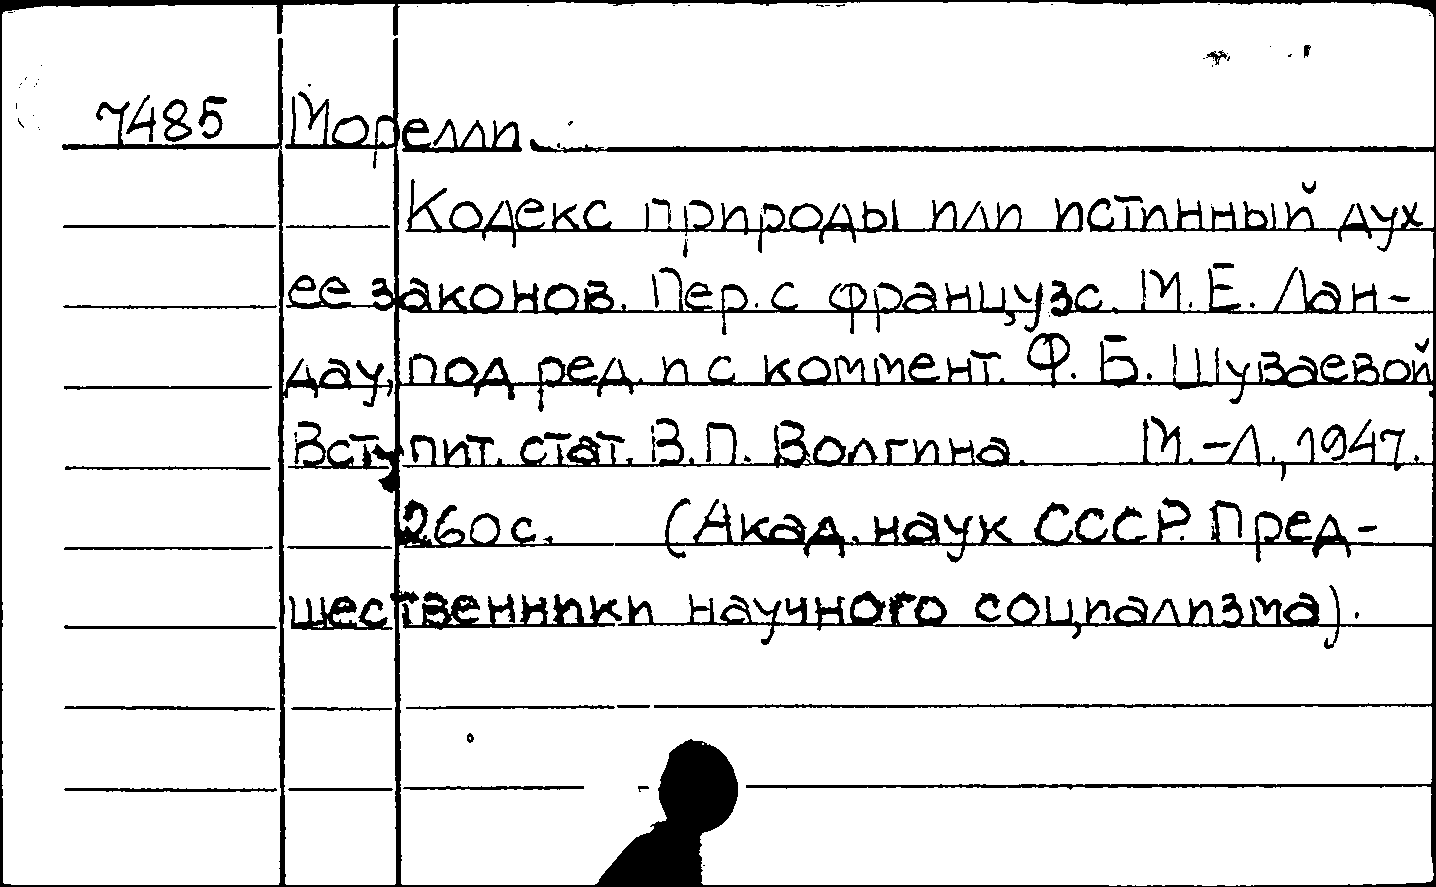 7485 Морелли.
Кодекс природы или истинный дух
ее законов. Пер. с французс. М.Е. Лан-
дау, под ред. и с коммент. Ф.Б. Шуваевой
Вступит. стат. В.П. Волгина. М.-Л., 1947.
260 с. (Акад. наук СССР. Пред-
шественники научного социализма).